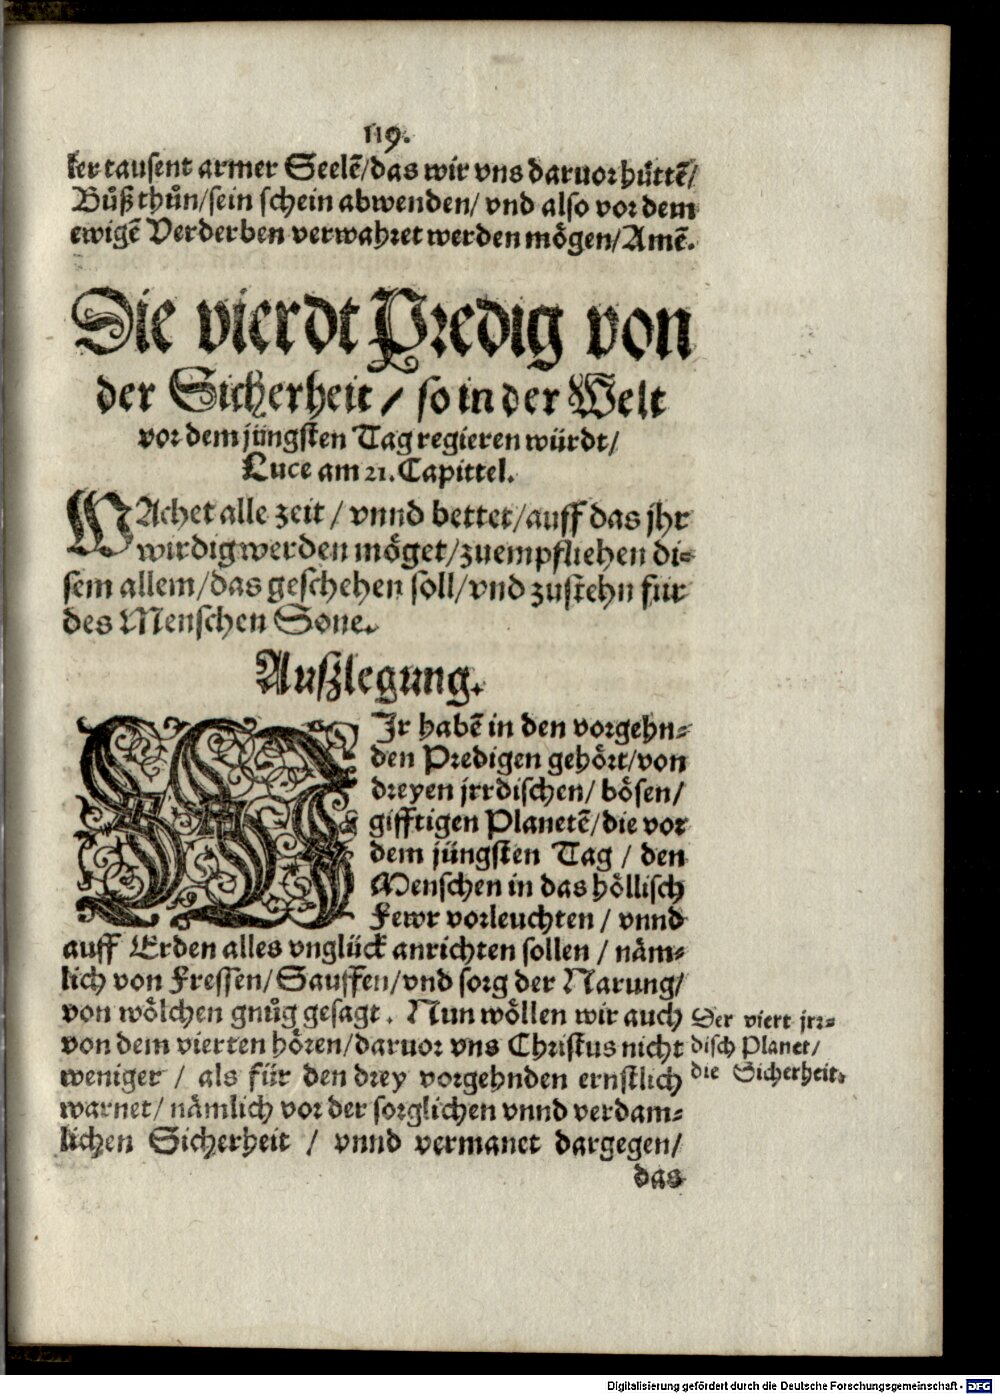 119.
ker tausent armer Seelẽ/das wir vns daruor hüttẽ/
Bůß thůn/sein schein abwenden/ vnd also vor dem
ewigẽ Verderben verwahret werden mögen/Amẽ.
Die vierdt Predig von
der Sicherheit / so in der Welt
vor dem jüngsten Tag regieren würdt/
Luce am 21. Capittel.
WAchet alle zeit / vnnd bettet/auff das jhr
wirdig werden möget/zuempfliehen di=
sem allem/das geschehen soll/vnd zustehn für
des Menschen Sone.
Außlegung.
WIr habẽ in den vorgehn=
den Predigen gehört/von
dreyen jrrdischen/ bösen/
gifftigen Planetẽ/die vor
dem jüngsten Tag / den
Menschen in das höllisch
Fewr vorleuchten / vnnd
auff Erden alles vnglück anrichten sollen / näm=
lich von Fressen/Sauffen/vnd sorg der Narung/
von wölchen gnůg gesagt. Nun wöllen wir auch
von dem vierten hören/daruor vns Christus nicht
weniger / als für den drey vorgehnden ernstlich
warnet/ nämlich vor der sorglichen vnnd verdam=
lichen Sicherheit / vnnd vermanet dargegen/
das
Der viert jrr=
disch Planet/
die Sicherheit.
Digitalisierung gefördert durch die Deutsche Forschungsgemeinschaft - DFG